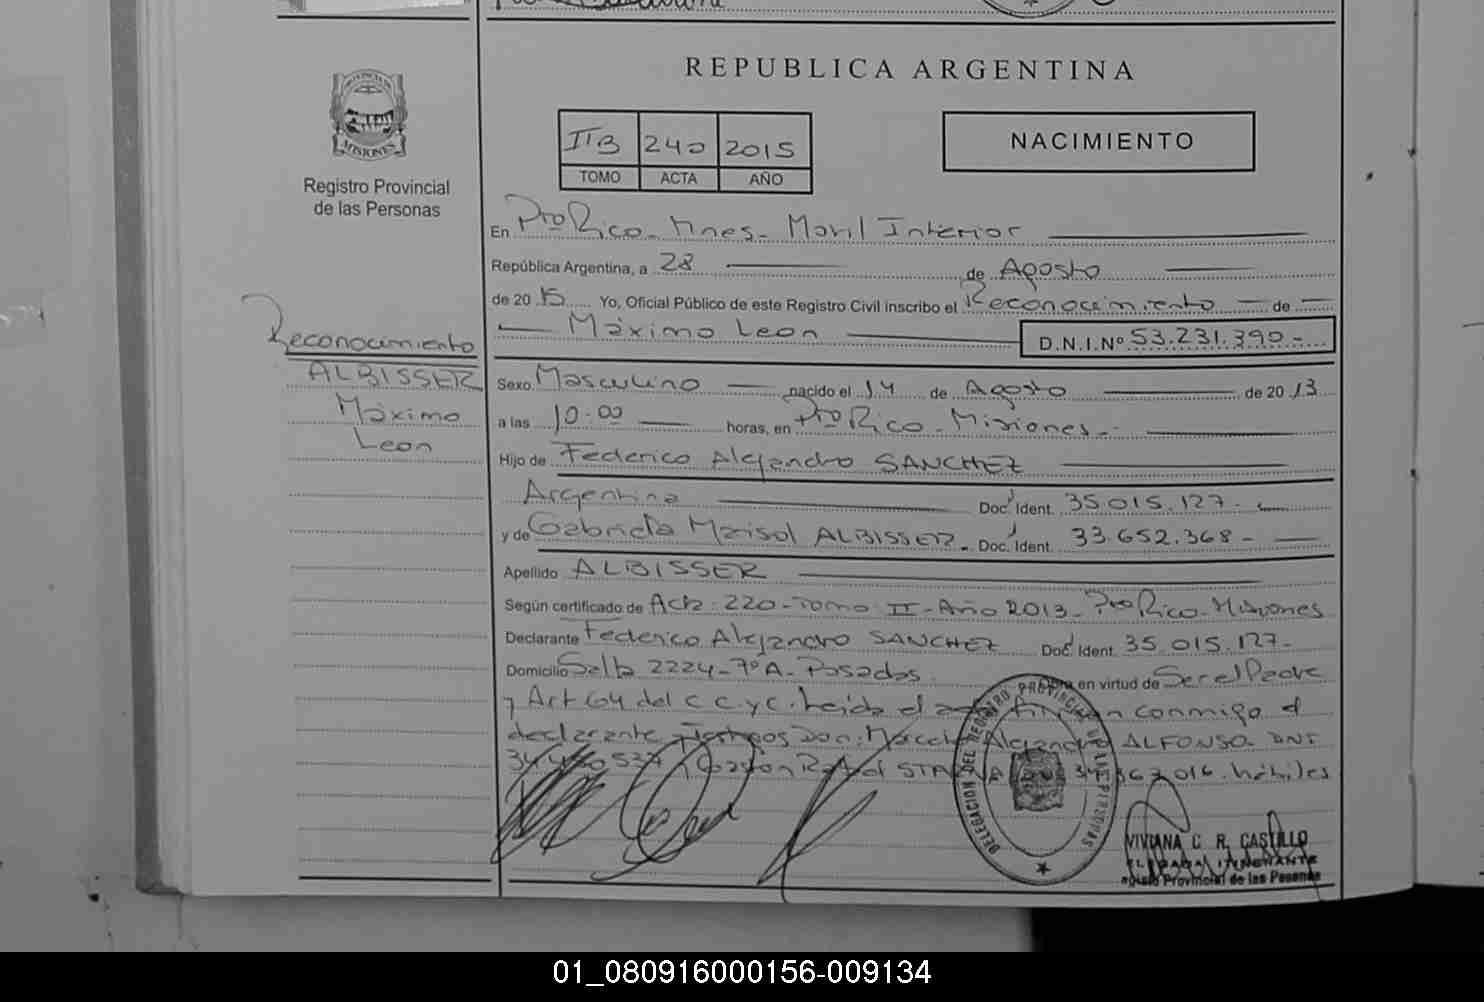 REPUBLICA ARGENTINA
PROVINCIA DE
MISIONES
Registro Provincial
de las Personas
IIB 240 2015
TOMO ACTA AÑO
NACIMIENTO
En Pto Rico - Mnes - Movil Interior
República Argentina, a 28 de Agosto
de 20 15 Yo, Oficial Público de este Registro Civil inscribo el Reconocimiento de
Máximo Leon D.N.I.Nº 53.231.390 -
Reconocimiento
ALBISSER
Máximo
Leon
Sexo Masculino nacido el 14 de Agosto de 20 13
a las 10:00 horas, en Pto Rico - Misiones -
Hijo de Federico Alejandro SANCHEZ
Argentina Doc. Ident. 35.015.127 -
y de Gabriela Marisol ALBISSER - Doc. Ident. 33.652.368 -
Apellido ALBISSER
Según certificado de Acta: 220 - Tomo II - Año 2013 - Pto Rico - Misiones
Declarante Federico Alejandro SANCHEZ Doc. Ident. 35.015.127 -
Domicilio Salta 2224 - 7º A - Posadas en virtud de Ser el Padre
y Art 64 del C.C.y C. Leida el conmigo el
declarante Testigos Don: Alejandro ALFONSO DNI
016. hábiles
DELEGACION DEL REGISTRO PROVINCIAL DE LAS PERSONAS
VIVIANA C. R. CASTILLO
ITINERANTE
Provincial de las Pesonas
01_080916000156-009134